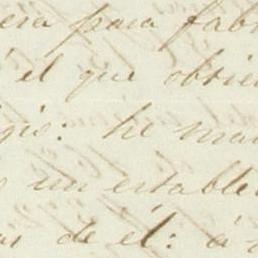 era para fab
él que obtie
gio: he man
un estable
as de él: á